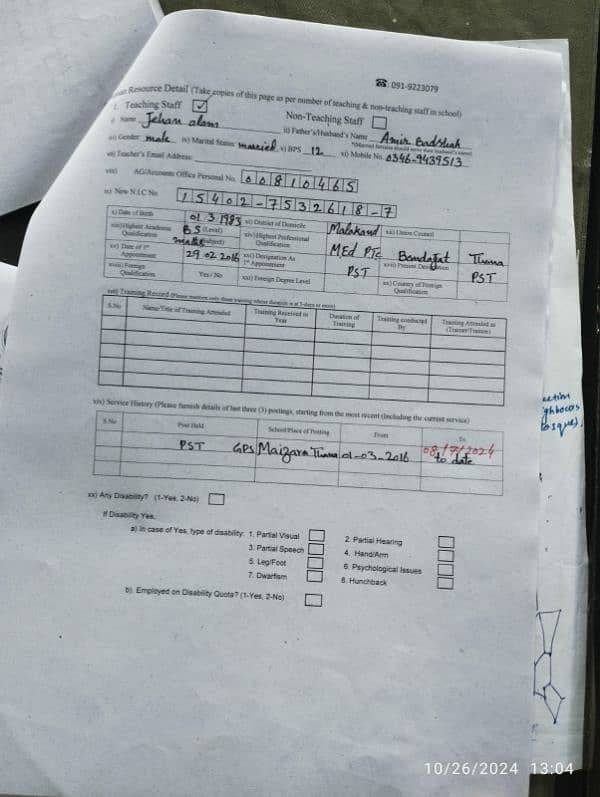 ☎: 091-9223079
Resource Detail (Take copies of this page as per number of teaching & non-teaching staff in school)
Teaching Staff ☑ Non-Teaching Staff ☐
i) Name Jehan alam ii) Father's/husband's Name Amir Badshah
iii) Gender male iv) Marital Status married v) BPS 12 vi) Mobile No. 0346-9439513
vii) Teacher's Email Address:
viii) AG/Accounts Office Personal No. 00810465
ix) New N.I.C No. 15402-7532618-7
x) Date of Birth 01 3 1983 xi) District of Domicile Malakand xii) Union Council Thana
xiii) Highest Academic Qualification BS (Level) maths (Subject) xiv) Highest Professional Qualification MEd PTC
xv) Date of 1st Appointment 29 02 2016 xvi) Designation As 1st Appointment PST xvii) Present Designation PST
xviii) Foreign Qualification Yes / No xix) Foreign Degree Level xx) Country of Foreign Qualification
Training Record (Please mention only those training whose duration is at 3-days or more)
S.No Name/Title of Training Attended Training Received in Year Duration of Training Training conducted By Training Attended as (Trainer/Trainee)
xix) Service History (Please furnish details of last three (3) postings, starting from the most recent (including the current service)
S.No Post Held School/Place of Posting From To
08/7/2024
PST GPS Maizara Thana 01-03-2016 to date
xx) Any Disability? (1-Yes, 2-No)
If Disability Yes,
a) In case of Yes, type of disability: 1. Partial Visual 2. Partial Hearing
3. Partial Speech 4. Hand/Arm
5. Leg/Foot 6. Psychological Issues
7. Dwarfism 8. Hunchback
b). Employed on Disability Quota? (1-Yes, 2-No)
10/26/2024 13:04